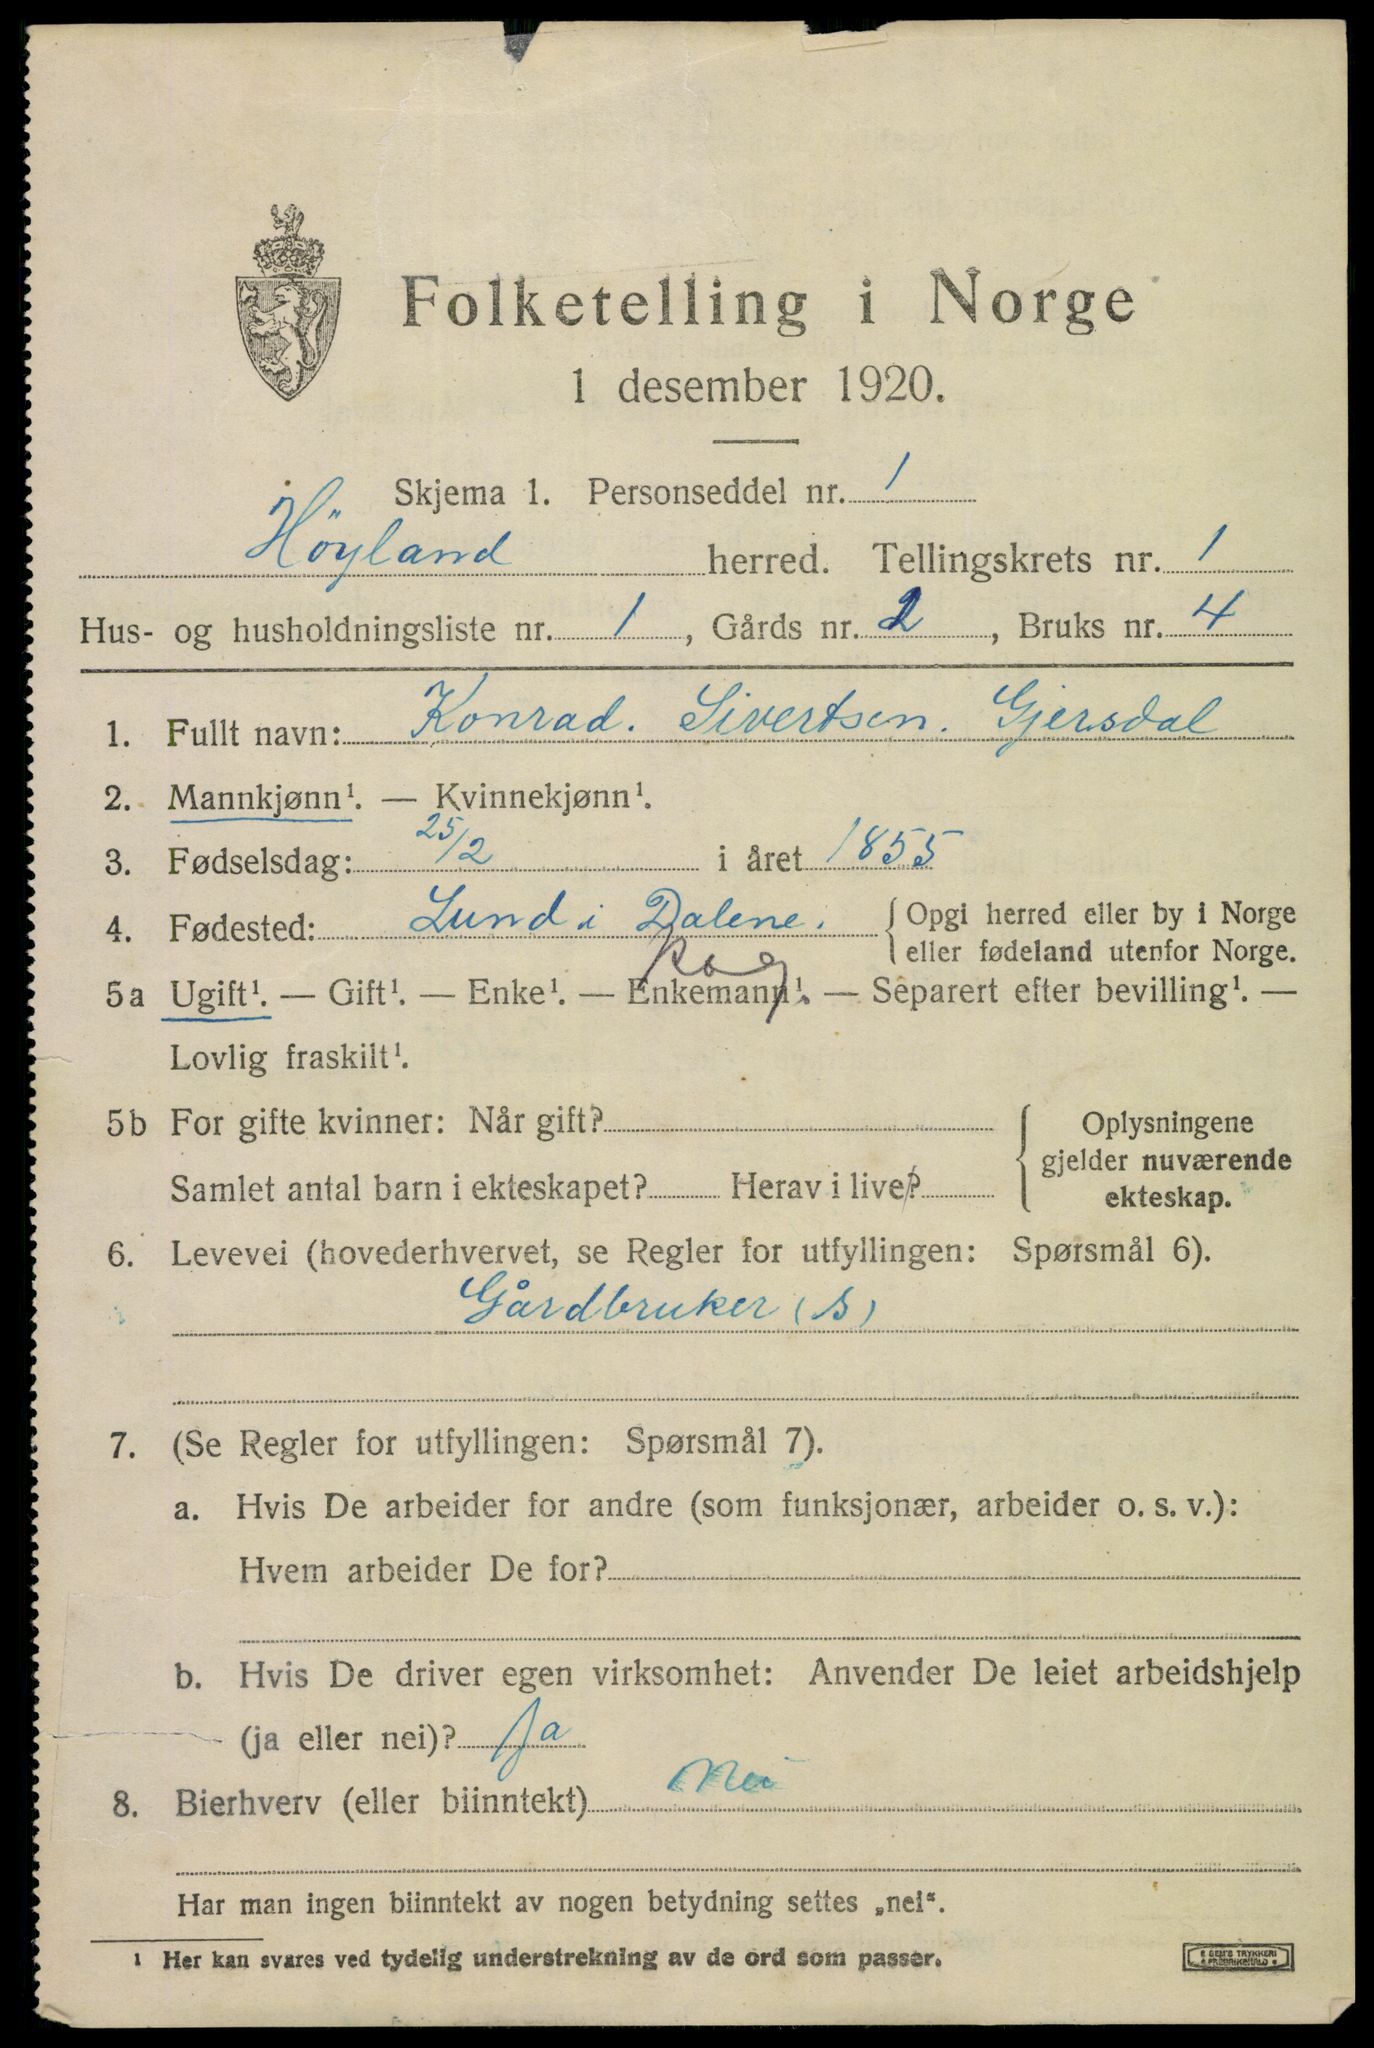 Folketelling i Norge
1 desember 1920.
Skjema 1. Personseddel nr. 1
Höyland herred. Tellingskrets nr. 1
Hus- og husholdningsliste nr. 1, Gårds nr. 2, Bruks nr. 4
1. Fullt navn: Konrad. Sivertsen. Gjersdal
2. Mannkjønn¹. — Kvinnekjønn¹.
3. Fødselsdag: 25/2 i året 1855
4. Fødested: Lund i Dalene. { Opgi herred eller by i Norge
eller fødeland utenfor Norge.
Rog
5a Ugift¹. — Gift¹. — Enke¹. — Enkemann¹. — Separert efter bevilling¹. —
Lovlig fraskilt¹.
5b For gifte kvinner: Når gift?
Samlet antal barn i ekteskapet? Herav i live?
{ Oplysningene
gjelder nuværende
ekteskap.
6. Levevei (hovederhvervet, se Regler for utfyllingen: Spørsmål 6).
Gårdbruker (S)
7. (Se Regler for utfyllingen: Spørsmål 7).
a. Hvis De arbeider for andre (som funksjonær, arbeider o. s. v.):
Hvem arbeider De for?
b. Hvis De driver egen virksomhet: Anvender De leiet arbeidshjelp
(ja eller nei)? Ja
8. Bierhverv (eller biinntekt) Nei
Har man ingen biinntekt av nogen betydning settes „nei“.
1 Her kan svares ved tydelig understrekning av de ord som passer.